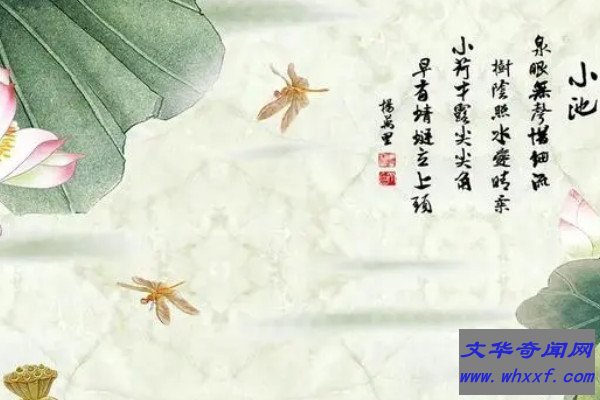 小池
泉眼無聲惜細流
樹陰照水愛晴柔
小荷才露尖尖角
早有蜻蜓立上頭
楊萬里
文华奇闻网
www.whxxf.com